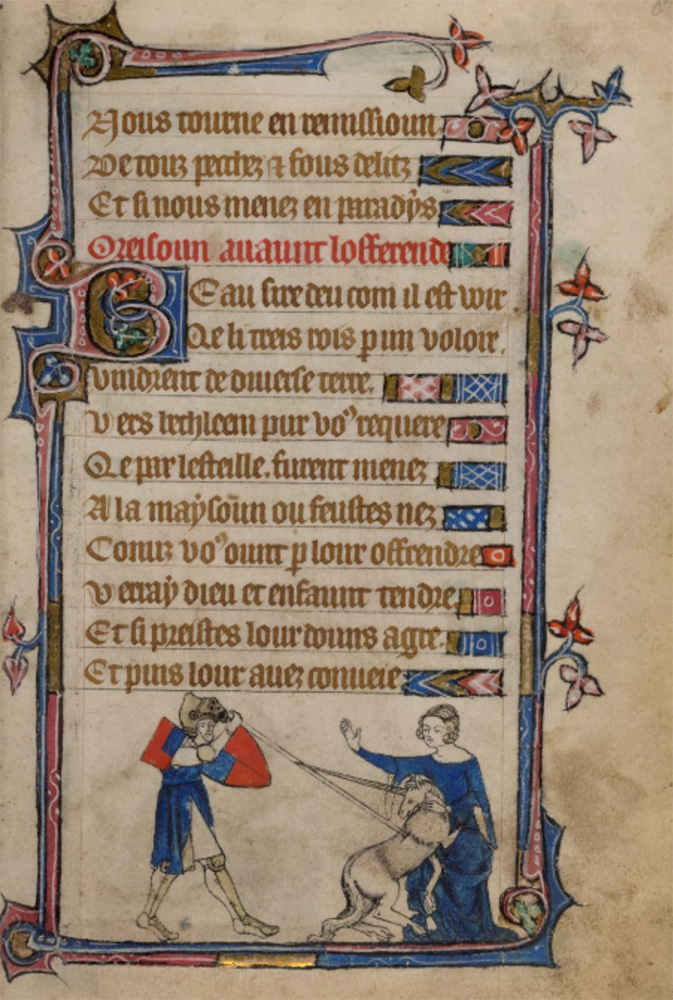 Nous tourne en remissioun
De touz pecchez ⁊ fous delitz
Et si nous menez en paradys
Oreisoun auaunt lofferende
BEau sire deu com il est voir
Qe li treis rois ꝑ un voloir.
Vindrent de diuerse terre.
Vers bethleem pur voꝰ requere
Qe par lesteille. furent menez
A la maysoun ou feustes nez
Conuz voꝰ ount ꝑ lour offrendre
Verray dieu et enfaunt tendre
Et si preistes lour douns agre.
Et puis lour auez conueie